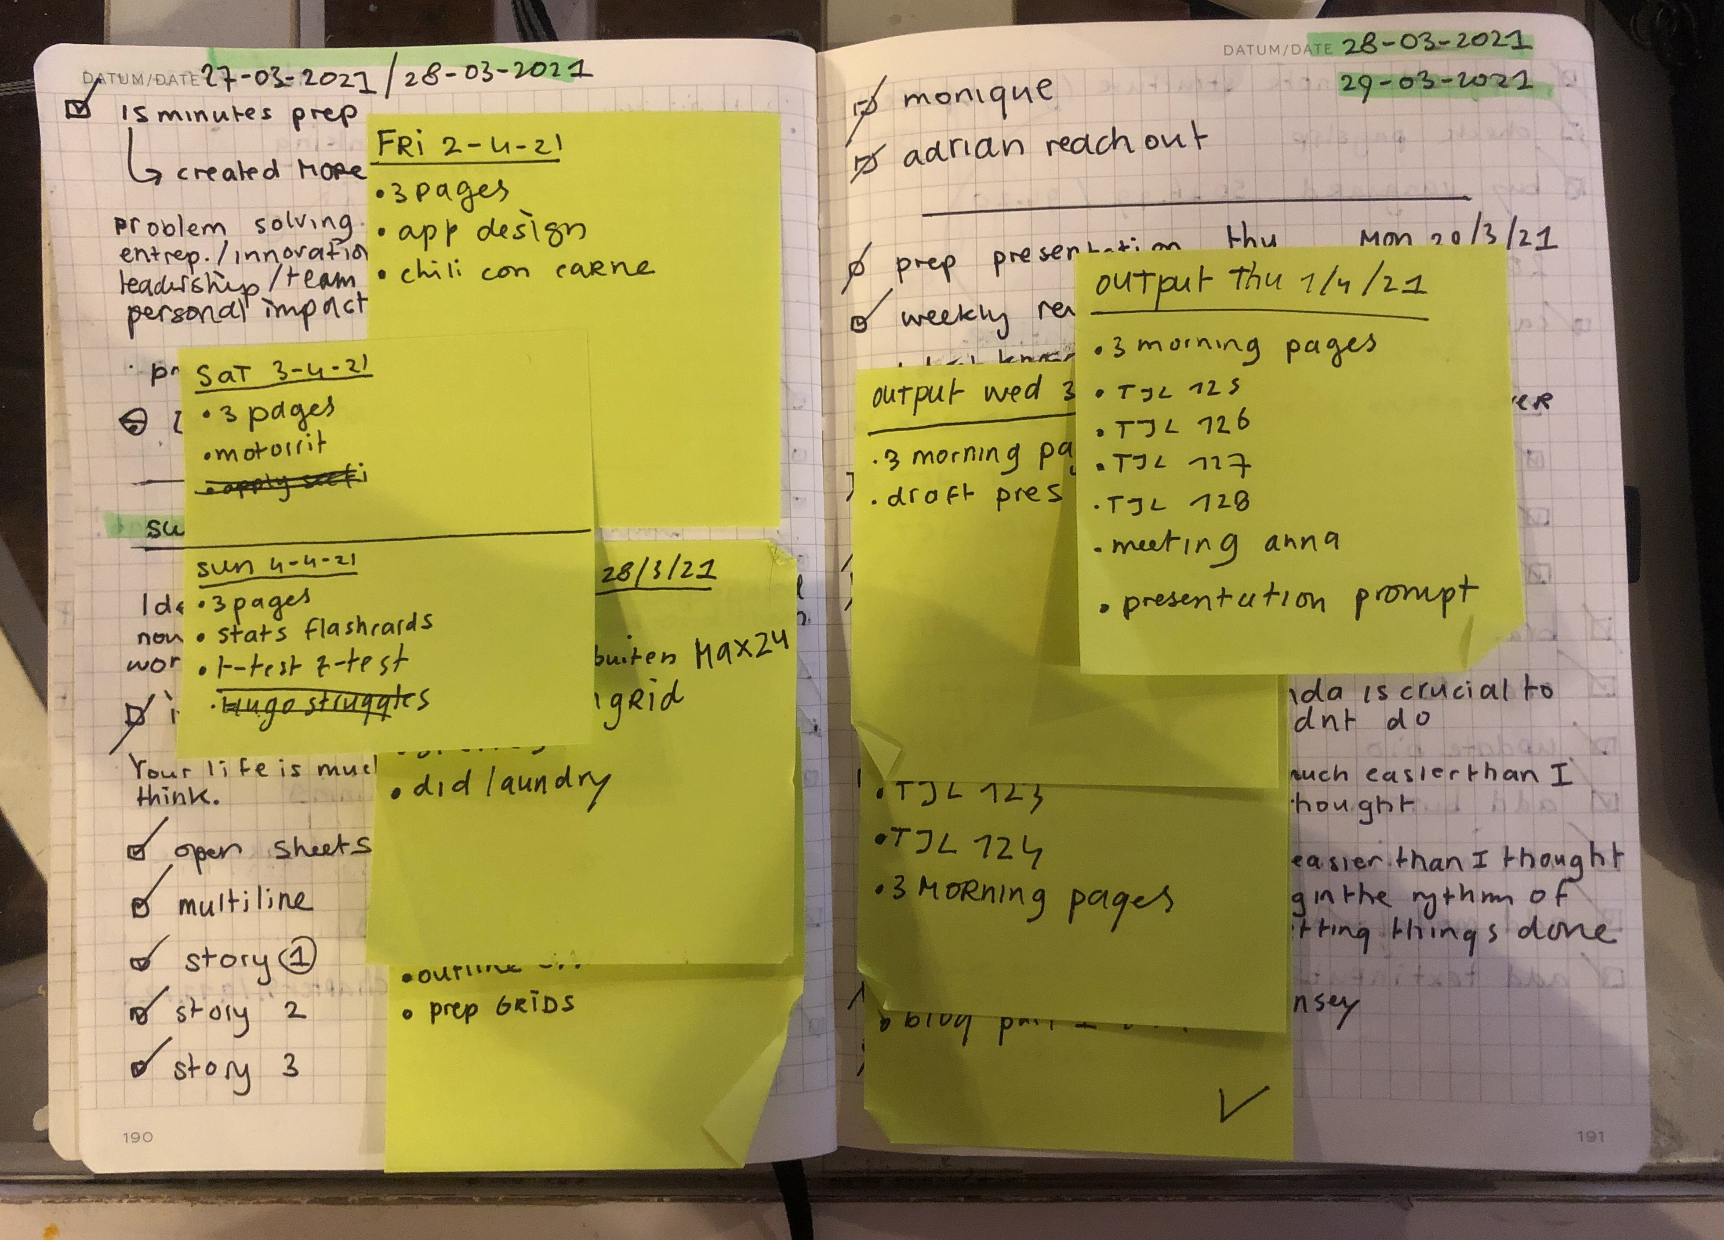 DATUM/DATE 27-03-2021 / 28-03-2021
15 minutes prep
created MORE
problem solving
entrep./innovation
leadership/team
personal impact
su
Ide
now
wor
Your life is much
think.
open sheets
multiline
story 1
story 2
story 3
190
FRi 2-4-21
• 3 pages
• app design
• chili con carne
SaT 3-4-21
• 3 pages
• motorrit
sun 4-4-21
• 3 pages
• stats flashcards
• t-test z-test
• Hugo struggles
28/3/21
buiten MAX24
GRID
• did laundry
• outline
• prep GRiDS
DATUM/DATE 28-03-2021
29-03-2021
monique
adrian reach out
prep presentation thu Mon 29/3/21
weekly rev
output wed 3
• 3 morning pag
• draft pres
output Thu 1/4/21
• 3 morning pages
• TJL 125
• TJL 126
• TJL 127
• TJL 128
• meeting anna
• presentation prompt
nda is crucial to
dnt do
much easier than I
thought
easier than I thought
g in the rythm of
tting things done
nsey
• TJL 123
• TJL 124
• 3 MORNing pages
• blog
191